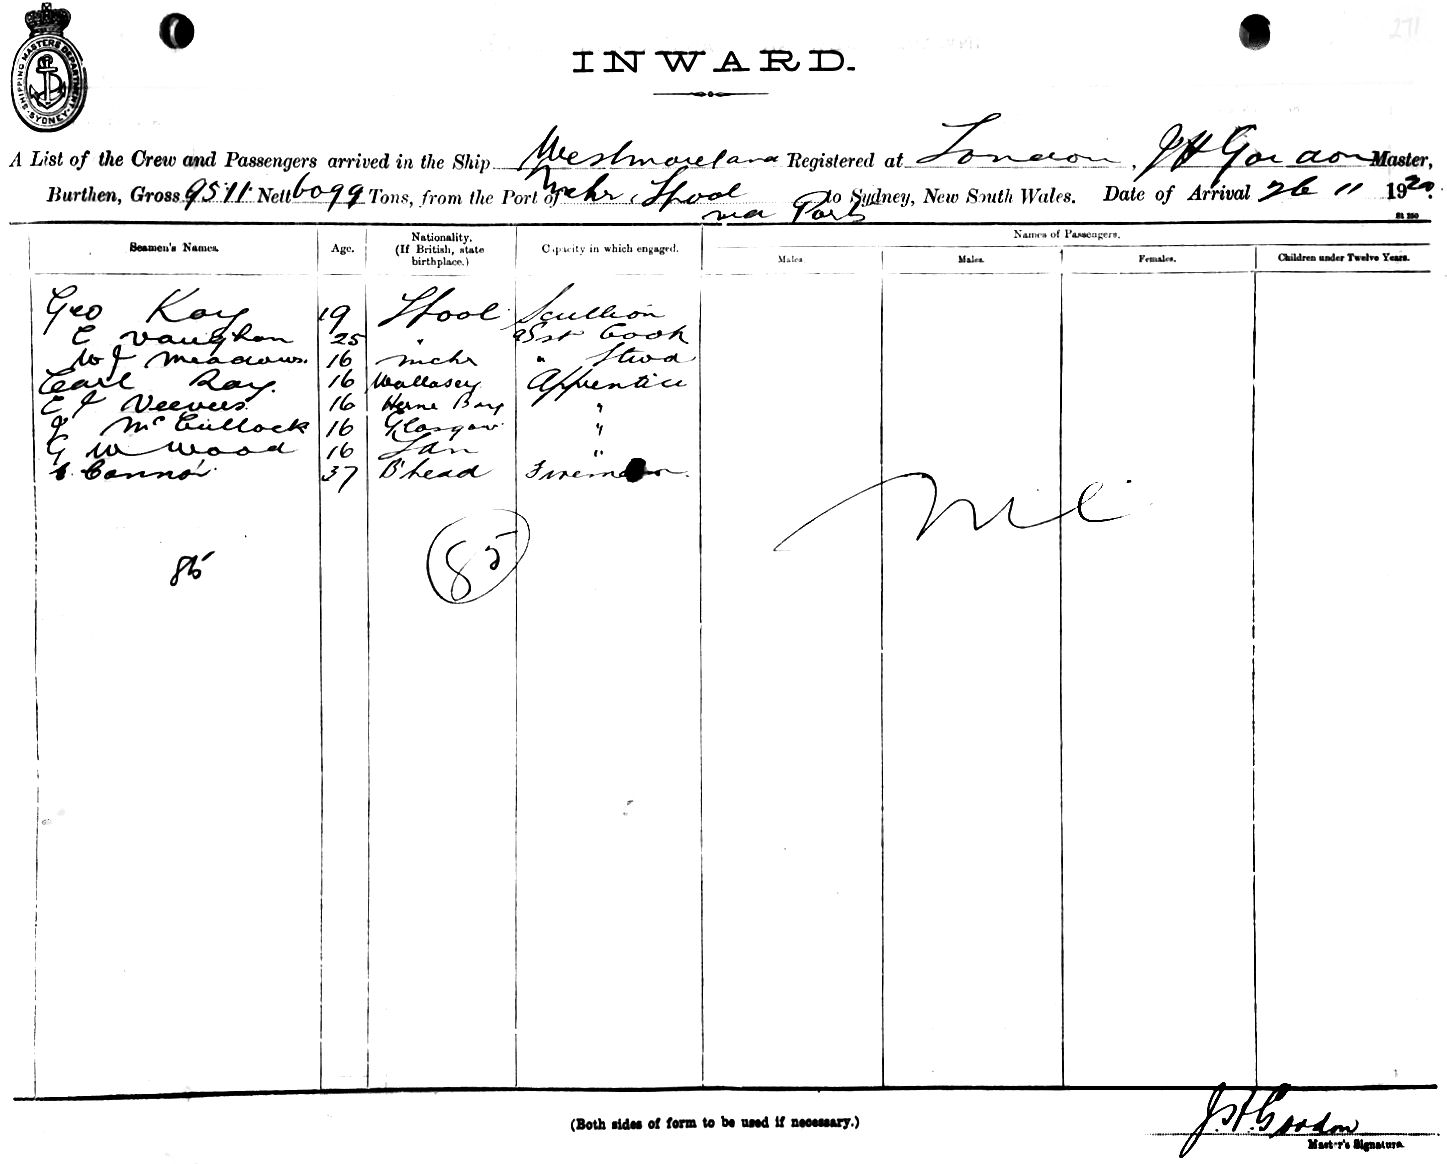 271
SHIPPING MASTERS DEPARTMENT SYDNEY
INWARD.
A List of the Crew and Passengers arrived in the Ship Westmoreland Registered at London, J H Gordon Master,
Burthen, Gross 9511 Nett 6099 Tons, from the Port of Mchr, L'pool via Ports to Sydney, New South Wales. Date of Arrival 26 11 1920.
Seamen's Names. Age. Nationality. (If British, state birthplace.) Capacity in which engaged. Names of Passengers.
Males Males. Females. Children under Twelve Years.
Geo Kay 19 L'pool Scullion
E Vaughan 25 " Asst Cook
W J Meadows. 16 Mchr " Stwd
Earl Ray. 16 Wallasey Apprentice
E J Veevers 16 Herne Bay "
J McCullock 16 Glasgow "
G W Wood 16 "
Connor 37 B'head Fireman
Nil
85 85
(Both sides of form to be used if necessary.)
J. H. Gordon
Master's Signature.